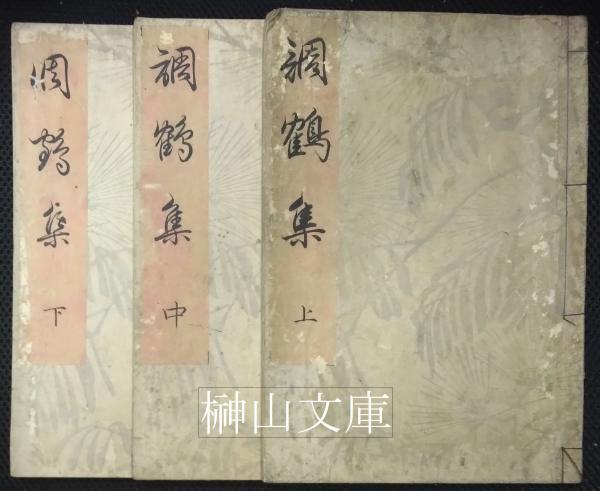 調鶴集
上
調鶴集
中
調鶴集
下
榊山文庫